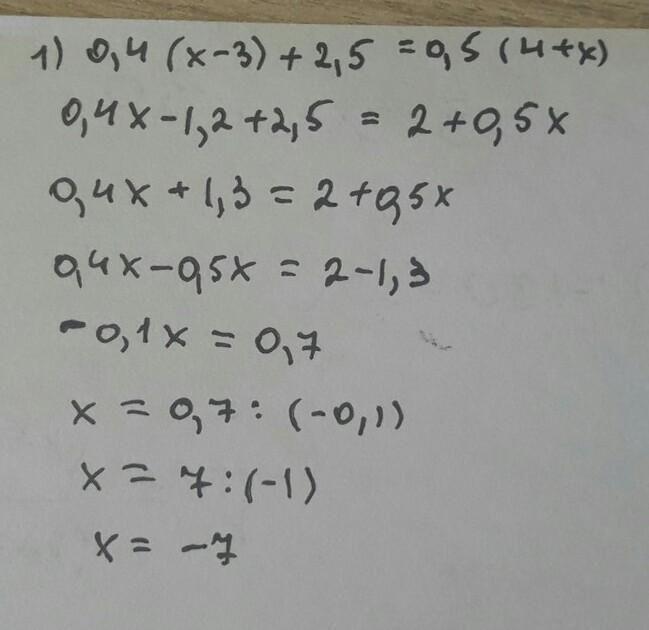 1) 0,4 (x-3) + 2,5 = 0,5 (4+x)
0,4x-1,2+2,5 = 2+0,5x
0,4x + 1,3 = 2+0,5x
0,4x-0,5x = 2-1,3
-0,1x = 0,7
x = 0,7 : (-0,1)
x = 7:(-1)
x = -7